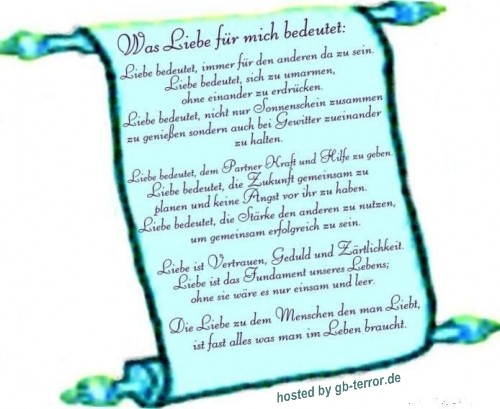 Was Liebe für mich bedeutet:
Liebe bedeutet, immer für den anderen da zu sein.
Liebe bedeutet, sich zu umarmen,
ohne einander zu erdrücken.
Liebe bedeutet, nicht nur Sonnenschein zusammen
zu genießen sondern auch bei Gewitter zueinander
zu halten.
Liebe bedeutet, dem Partner Kraft und Hilfe zu geben.
Liebe bedeutet, die Zukunft gemeinsam zu
planen und keine Angst vor ihr zu haben.
Liebe bedeutet, die Stärke den anderen zu nutzen,
um gemeinsam erfolgreich zu sein.
Liebe ist Vertrauen, Geduld und Zärtlichkeit.
Liebe ist das Fundament unseres Lebens;
ohne sie wäre es nur einsam und leer.
Die Liebe zu dem Menschen den man Liebt,
ist fast alles was man im Leben braucht.
hosted by gb-terror.de